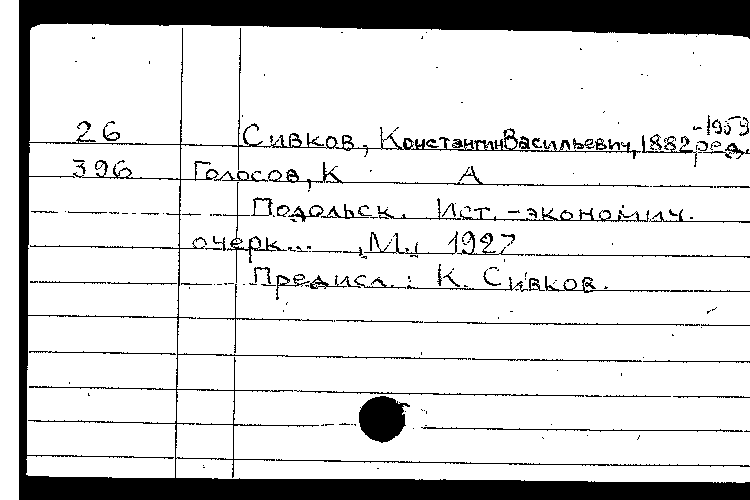 26 Сивков, Константин Васильевич, 1882-1959 ред.
396 Голосов, К А
Подольск. Ист.-экономич.
очерк... М., 1927
Предисл.: К. Сивков.